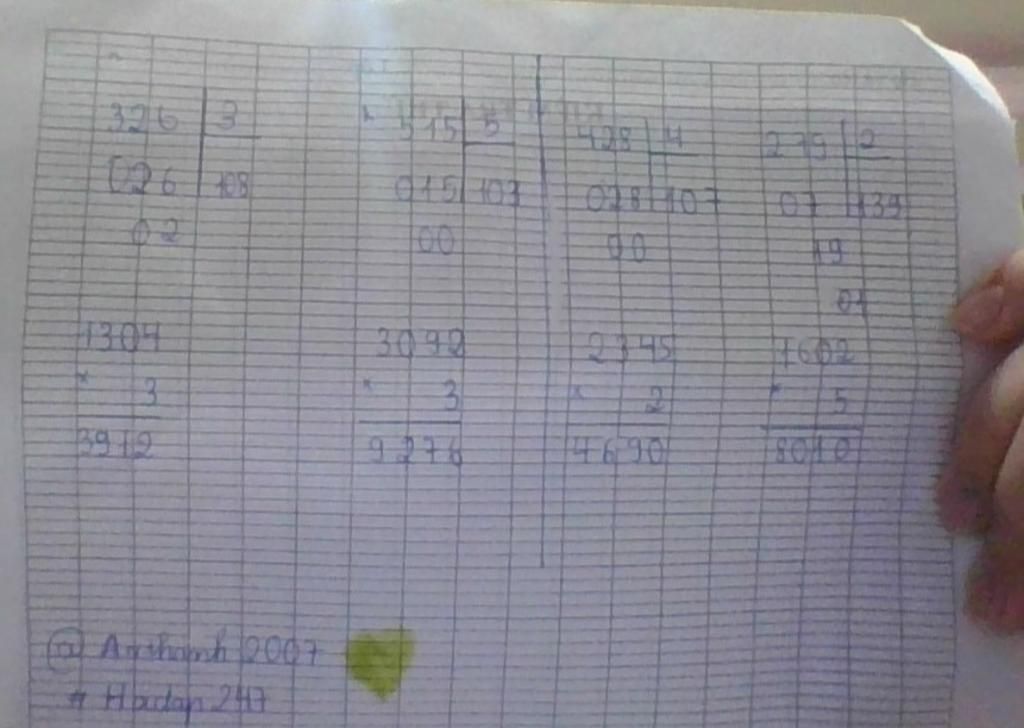 326 3 515 5 428 4 279 2
026 108 015 103 028 107 07 139
02 00 00 19
01
1304 3092 2345 1602
× 3 × 3 × 2 × 5
3912 9276 4690 8010
@ Anthanh 2007
# Hoidap 247